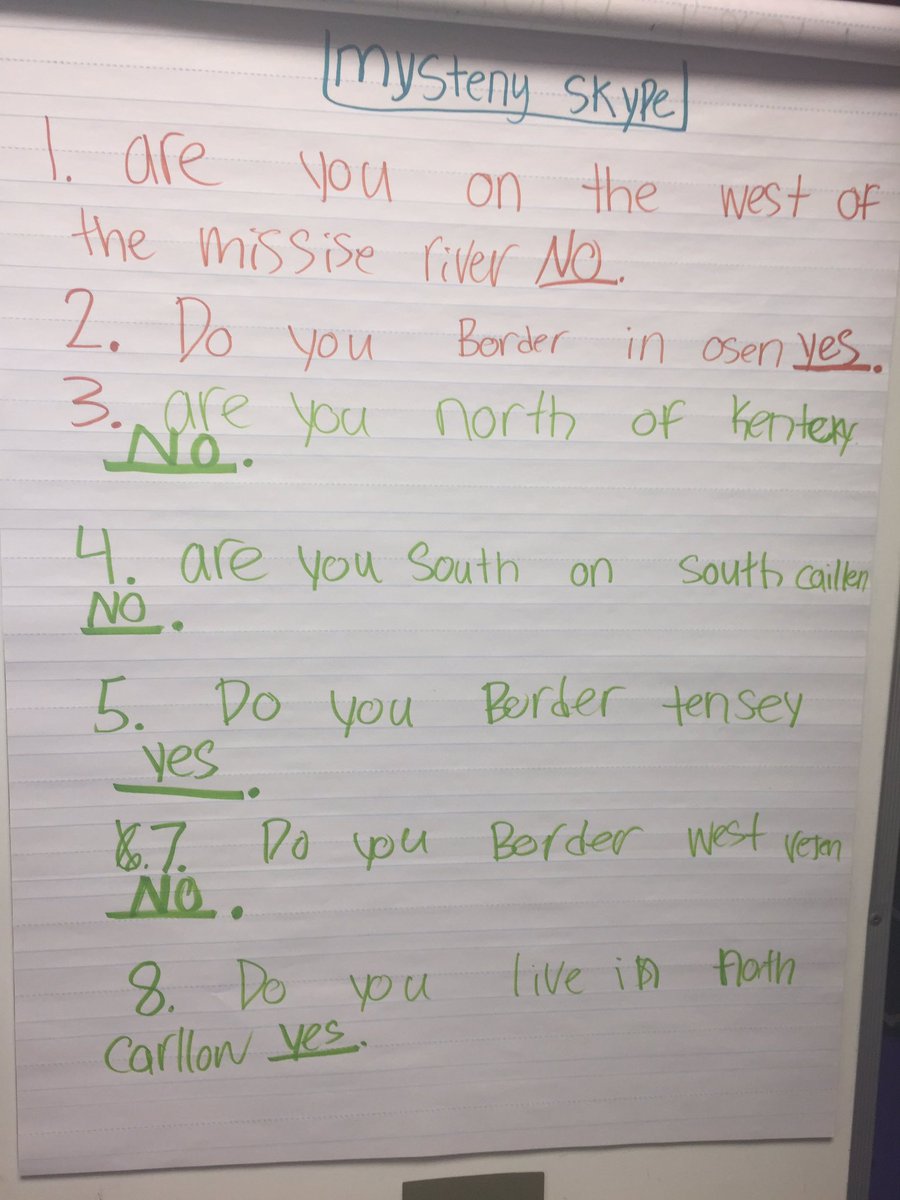 mysteny skype
1. are you on the west of
the missise river NO.
2. Do you Border in osen yes.
3. are you north of Kenteky
NO.
4. are you South on South caillen
NO.
5. Do you Border tensey
yes.
6.7. Do you Border west vejen
NO.
8. Do you live in north
carllow yes.